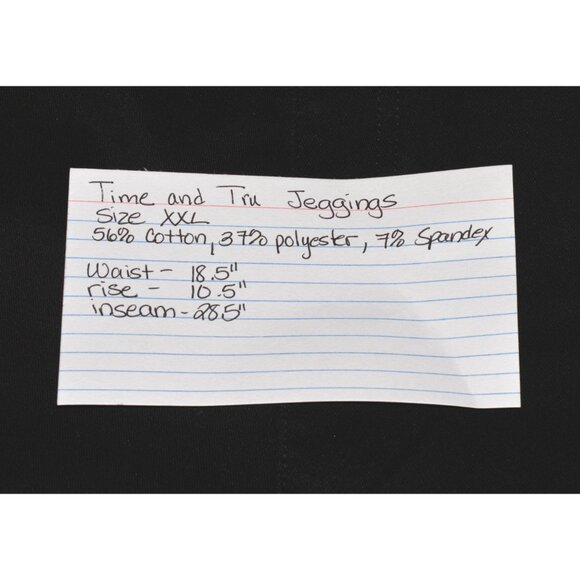 Time and Tru Jeggings
Size XXL
56% Cotton, 37% polyester, 7% Spandex
Waist - 18.5"
rise - 10.5"
inseam - 28.5"